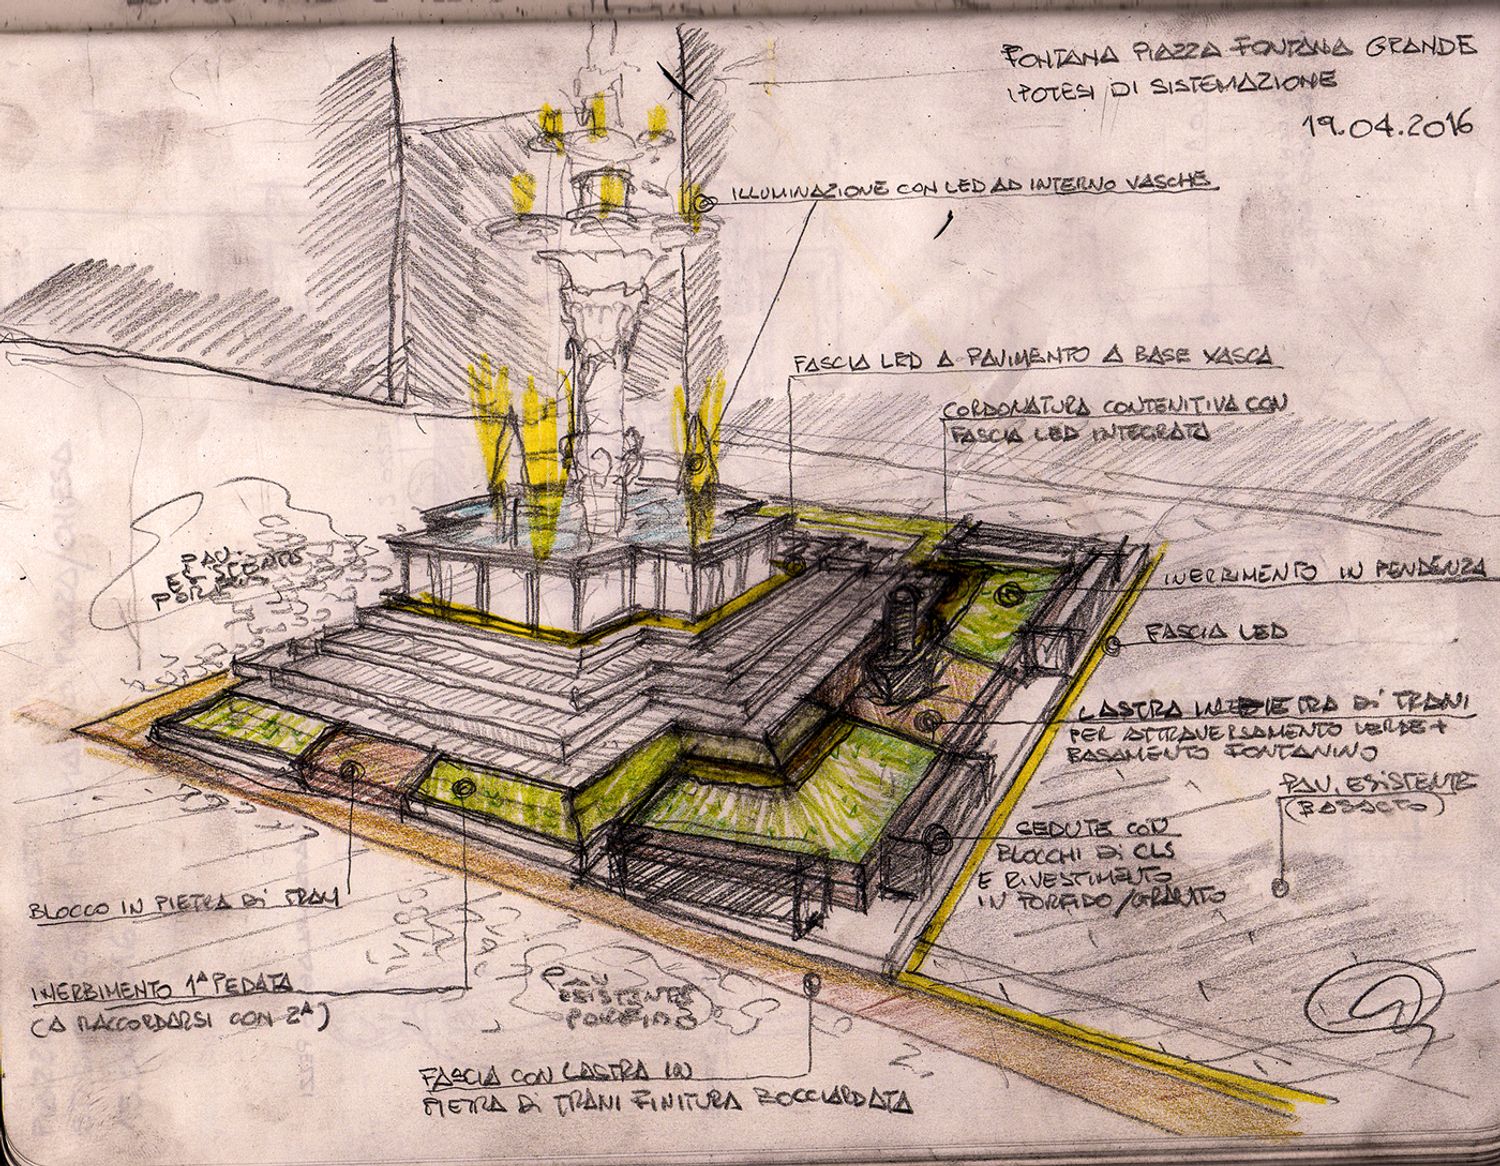 FONTANA PIAZZA FONTANA GRANDE
IPOTESI DI SISTEMAZIONE
19.04.2016
ILLUMINAZIONE CON LED AD INTERNO VASCHE
FASCIA LED A PAVIMENTO A BASE VASCA
CORDONATURA CONTENITIVA CON
FASCIA LED INTEGRATA
PAV.
INERBIMENTO IN PENDENZA
FASCIA LED
LASTRA IN PIETRA DI TRANI
PER ATTRAVERSAMENTO VERDE +
BASAMENTO FONTANINO
PAV. ESISTENTE
(BASALTO)
SEDUTE CON
BLOCCHI DI CLS
E RIVESTIMENTO
IN PORFIDO/GRANITO
BLOCCO IN PIETRA DI TRANI
INERBIMENTO 1ª PEDATA
(A RACCORDARSI CON 2ª)
PAV
ESISTENTE
PORFIDO
FASCIA CON LASTRA IN
PIETRA DI TRANI FINITURA BOCCIARDATA